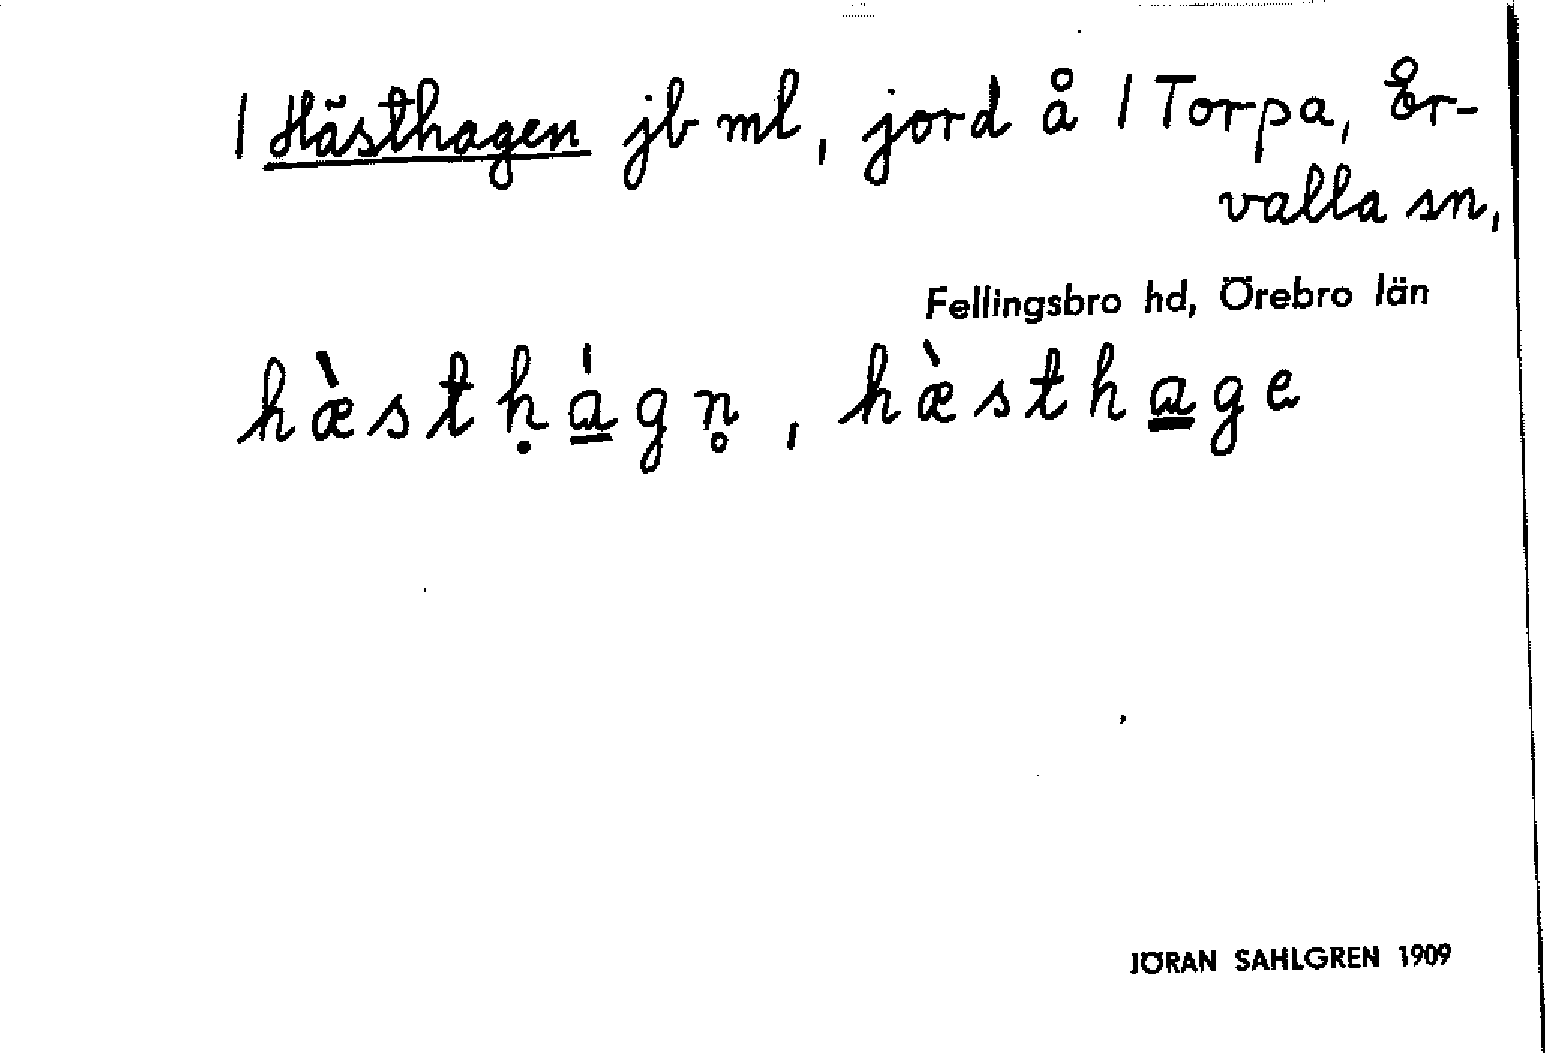 / Hästhagen jb ml, jord å / Torpa, Er-
valla sn,
Fellingsbro hd, Örebro län
hæ̀stḥá̱gn̥, hæ̀stha̱ge
JÖRAN SAHLGREN 1909